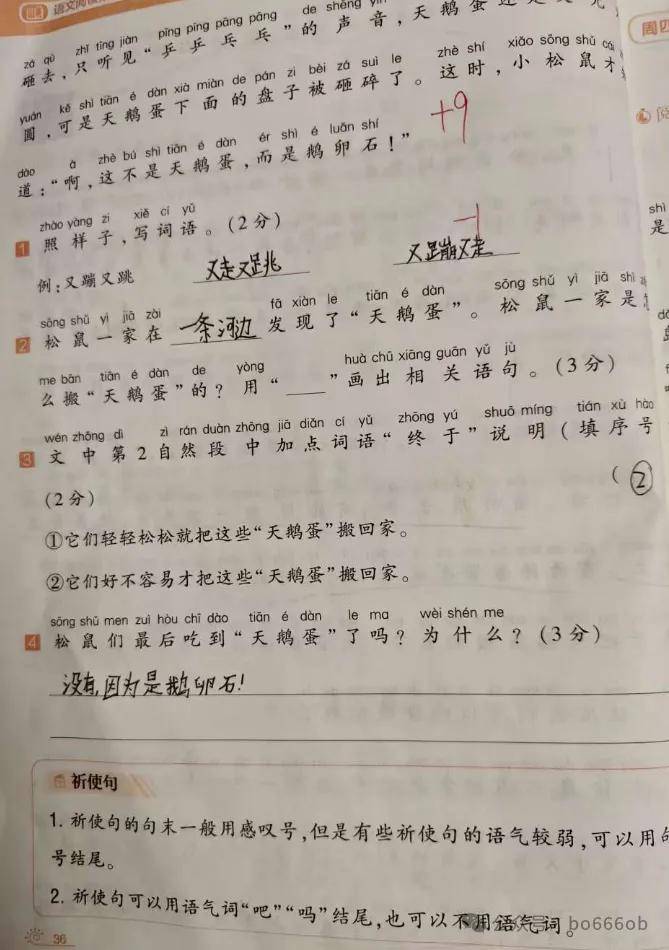 语文阅读
zá qù zhǐ tīng jiàn pīng pīng pāng pāng de shēng yīn
砸去，只听见“乒乒乓乓”的声音，天鹅蛋还是又
周四
yuán kě shì tiān é dàn xià miàn de pán zi bèi zá suì le zhè shí xiǎo sōng shǔ cái
圆，可是天鹅蛋下面的盘子被砸碎了。这时，小松鼠才
+9
dào à zhè bú shì tiān é dàn ér shì é luǎn shí
道：“啊，这不是天鹅蛋，而是鹅卵石！”
zhào yàng zi xiě cí yǔ
1 照样子，写词语。（2分）
-1
例：又蹦又跳 又走又跳 又蹦又走
sōng shǔ yì jiā zài fā xiàn le tiān é dàn sōng shǔ yì jiā shì
2 松鼠一家在 一条河边 发现了“天鹅蛋”。松鼠一家是
me bān tiān é dàn de yòng huà chū xiāng guān yǔ jù
么搬“天鹅蛋”的？用“____”画出相关语句。（3分）
wén zhōng dì zì rán duàn zhōng jiā diǎn cí yǔ zhōng yú shuō míng tián xù hào
3 文中第2自然段中加点词语“终于”说明（填序号
（②
（2分）
①它们轻轻松松就把这些“天鹅蛋”搬回家。
②它们好不容易才把这些“天鹅蛋”搬回家。
sōng shǔ men zuì hòu chī dào tiān é dàn le ma wèi shén me
4 松鼠们最后吃到“天鹅蛋”了吗？为什么？（3分）
没有，因为是鹅卵石！
祈使句
1. 祈使句的句末一般用感叹号，但是有些祈使句的语气较弱，可以用句
号结尾。
2. 祈使句可以用语气词“吧”“吗”结尾，也可以不用语气词。
bo666ob
36